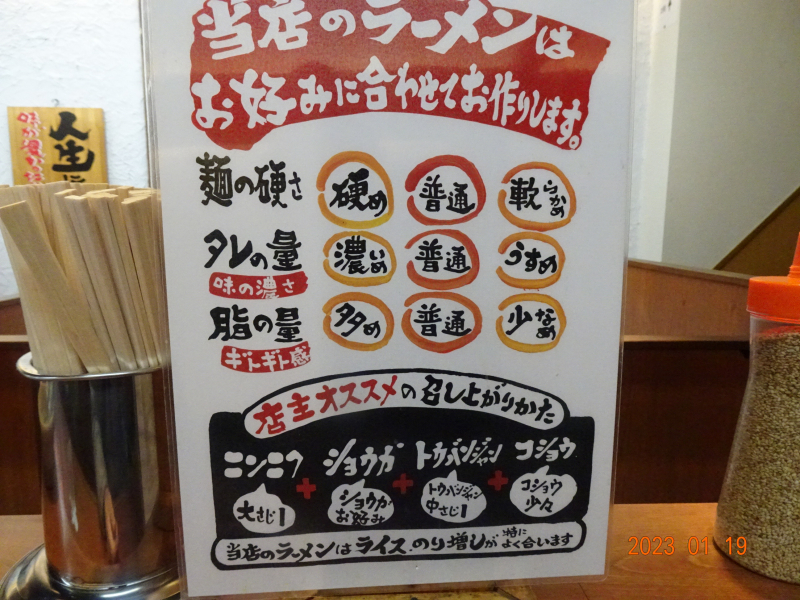 当店のラーメンは
お好みに合わせてお作りします。
麺の硬さ 硬め 普通 軟らかめ
タレの量 濃いめ 普通 うすめ
味の濃さ
脂の量 多め 普通 少なめ
ギトギト感
店主オススメの召し上がりかた
ニンニク + ショウガ + トウバンジャン + コショウ
大さじ1 ショウガお好み トウバンジャン中さじ1 コショウ少々
当店のラーメンはライス、のり増しが特によく合います
人生
味が濃かっ
2023 01 19